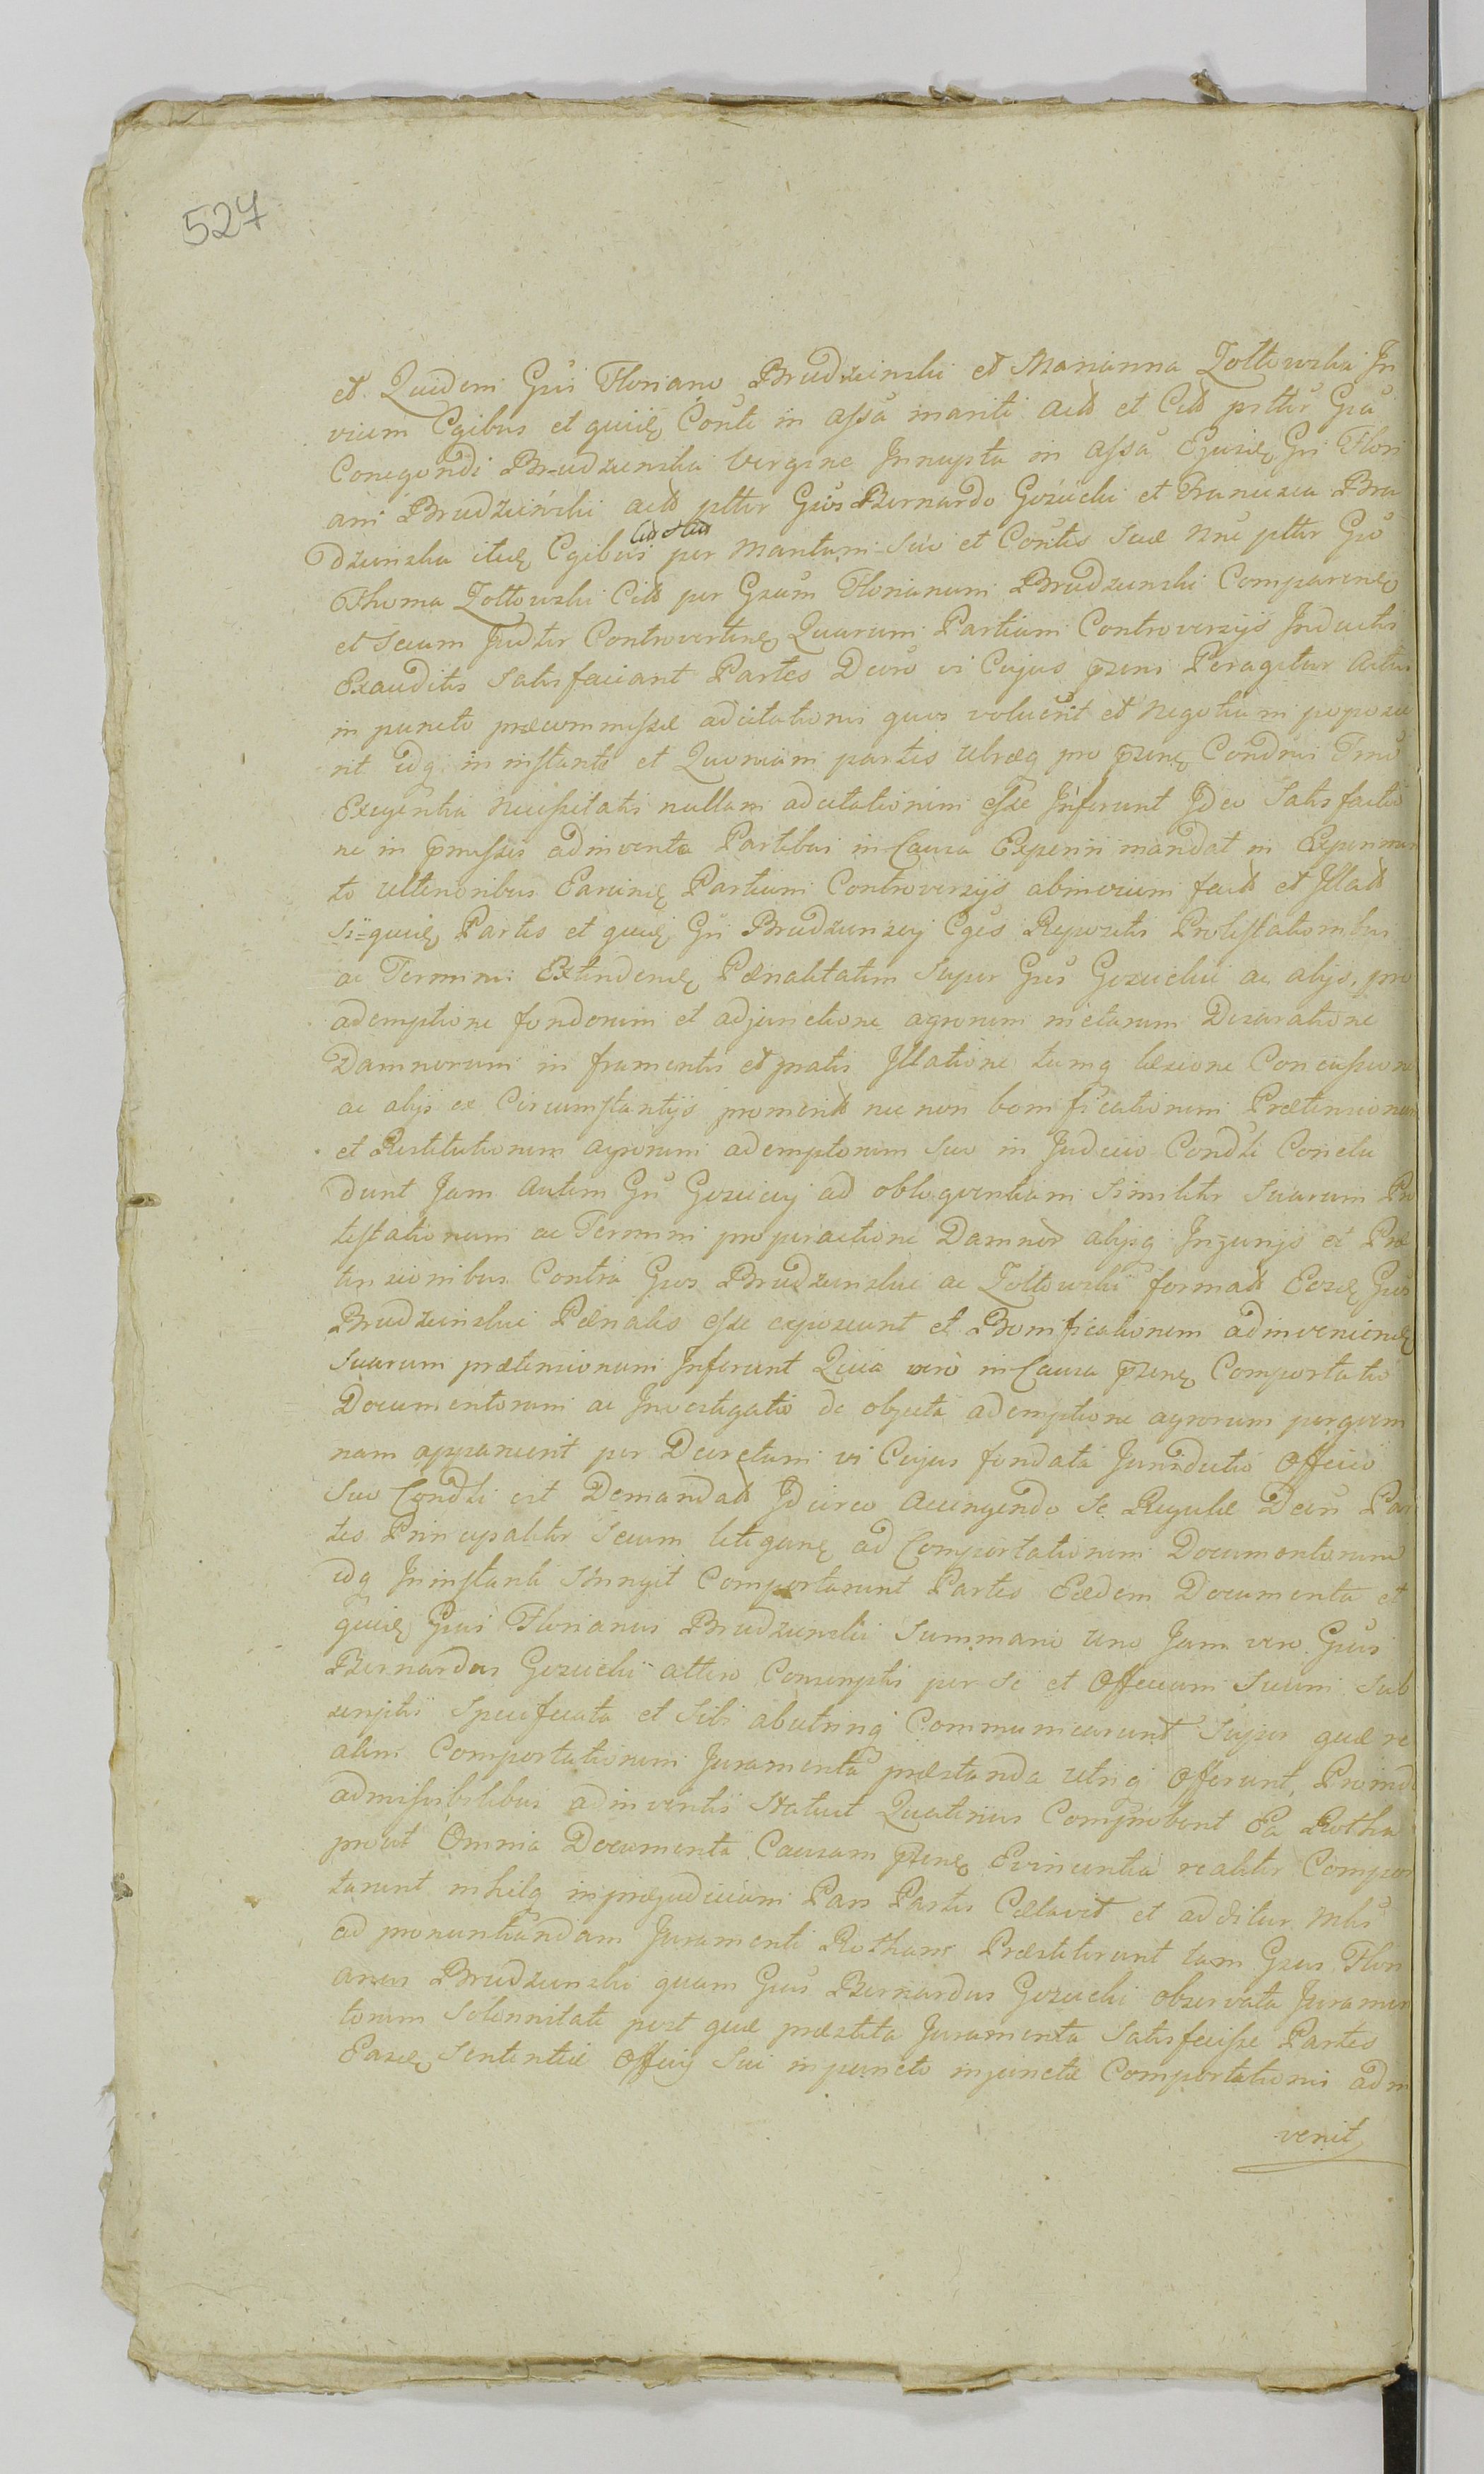 527
et Quidem Gsi Floriano Brudzinski et Marianna Zołtowska In
vicem Cgibus et quide Conte in assa mariti actt et Citt prttr Gsa
Conegondi Brudzinska Virgine Innupta in assa Ejusde Gsi Flori
ani Brudziński actt pttr Gsos Bernardo Gozdicki et Francisca Bru
dzinska itde Cgibus per Maritum Suu et Contis Suæ Nne pttr Gso
Thoma Zołtowski Citt per Gsum Florianum Brudzinski Comparende
et Secum Judtr Controvertende Quarum Partium Controversijs Inductis
Exauditis Satisfaciant Partes Decro vi Cujus prsens Peragitur Actus
in puncto præcommissæ adcitationis quos voluerit et Negotium poposce
rit idq in instanti et Quoniam partes utræq pro prsen Condni Tmno
Exigentia necessitatis nullam adcitationem esse Inferunt Ideo Satisfactio
ne in prmissis adinventa Partibus in Causa Experiri mandat in Experimen
to ulterioribus Earunde Partium Controversijs abinvicem factt et Illatt
Siquide Partes et quide Gsi Brudzinscy Cges Repositis Protestationibus
ac Termini Extendende Pænalitatem Super Gsos Gozdickie ac alijs pro
ademptione fundorum et adjunctione agrorum metarum Dexaratione
Damnorum in frumentis et pratis Illatione tumq læsione Concussione
ac alijs ex Circumstantijs promeritt nec non bonificationem Prætensionum
et Restitutionem agrorum ademptorum Suo in Judicio Condli Conclu
dunt Jam Autem Gsi Gozdiccy ad obloquentiam Similiter Suarum Pro
testationum ac Termini pro peractione Damnor alijsq Injurijs et Præ
tensionibus Contra Gsos Brudzinskie ac Zołtowski formatt Eosde Gsos
Brudzinskie Pænales esse exposcunt et Bonificationem adinveniende
Suarum prætensionum Inferunt Quia vero in Causa prsen Comportatio
Documentorum ac Investigatio de objecta ademptione agrorum perquem
nam apparuerit per Decretum vi Cujus fundata Jurisdictio Officio
Suo Condli est Demandatt Idcirco Accingendo Se Regulæ Decri Par
tes Principaliter Secum litigane ad Comportationem Documentorum
idq Ininstanti Stringit Comportarunt Partes Eædem Documenta et
quide Gsus Florianus Brudzinski Summario Uno Jam vero Gsus
Bernardus Gozdicki altero Conscriptis per Se et Officium Suum Sub
scriptis Specificata et Sibi abutrinq Communicarunt Super quæ re
alem Comportationem Juramenta præstanda utriq Offerunt, Proinde
admissibilibus adinventis Statuit Quatenus Comprobent Ea Rotha
prout Omnia Documenta Causam prsen Evincentia realiter Compor
tarunt nihilq inpræjudicium Pars Partis Cælavit et additur Mlis
ad pronuntiandam Juramenti Rotham Præstiterunt tam Gsus Flori
anus Brudzinski quam Gsus Bernardus Gozdicki observata Juramen
torum Solennitate post quæ præstita Juramenta Satisfecisse Partes
Easde Sententiæ Officij Sui inpuncto injunctæ Comportationis adin
venit